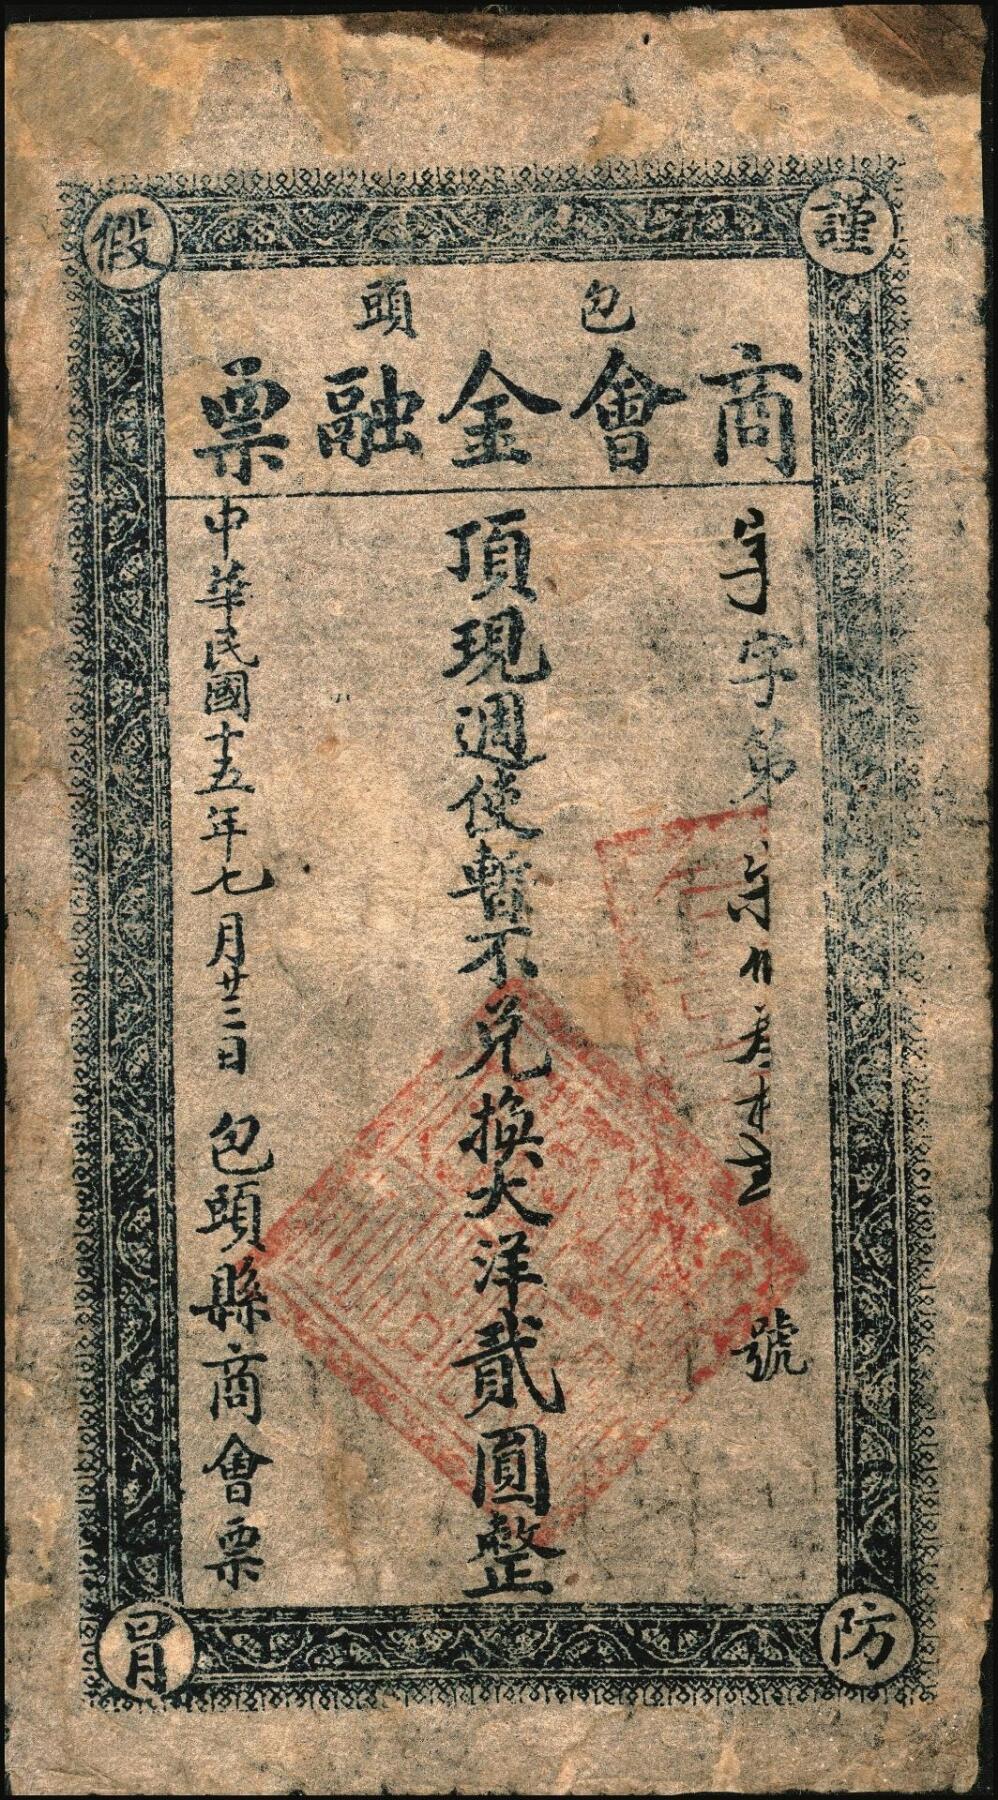 謹防假冒
包頭
商會金融票
字第 號
頂現週使暫不兌換大洋貳圓整
中華民國十五年七月廿二日 包頭縣商會票